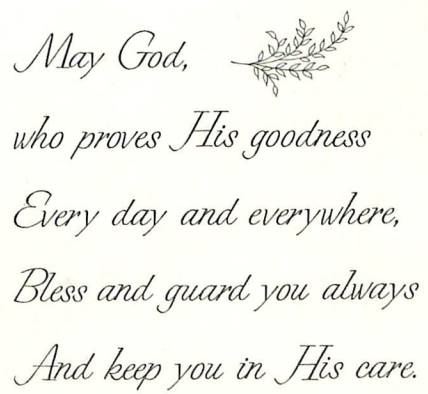 May God,
who proves His goodness
Every day and everywhere,
Bless and guard you always
And keep you in His care.